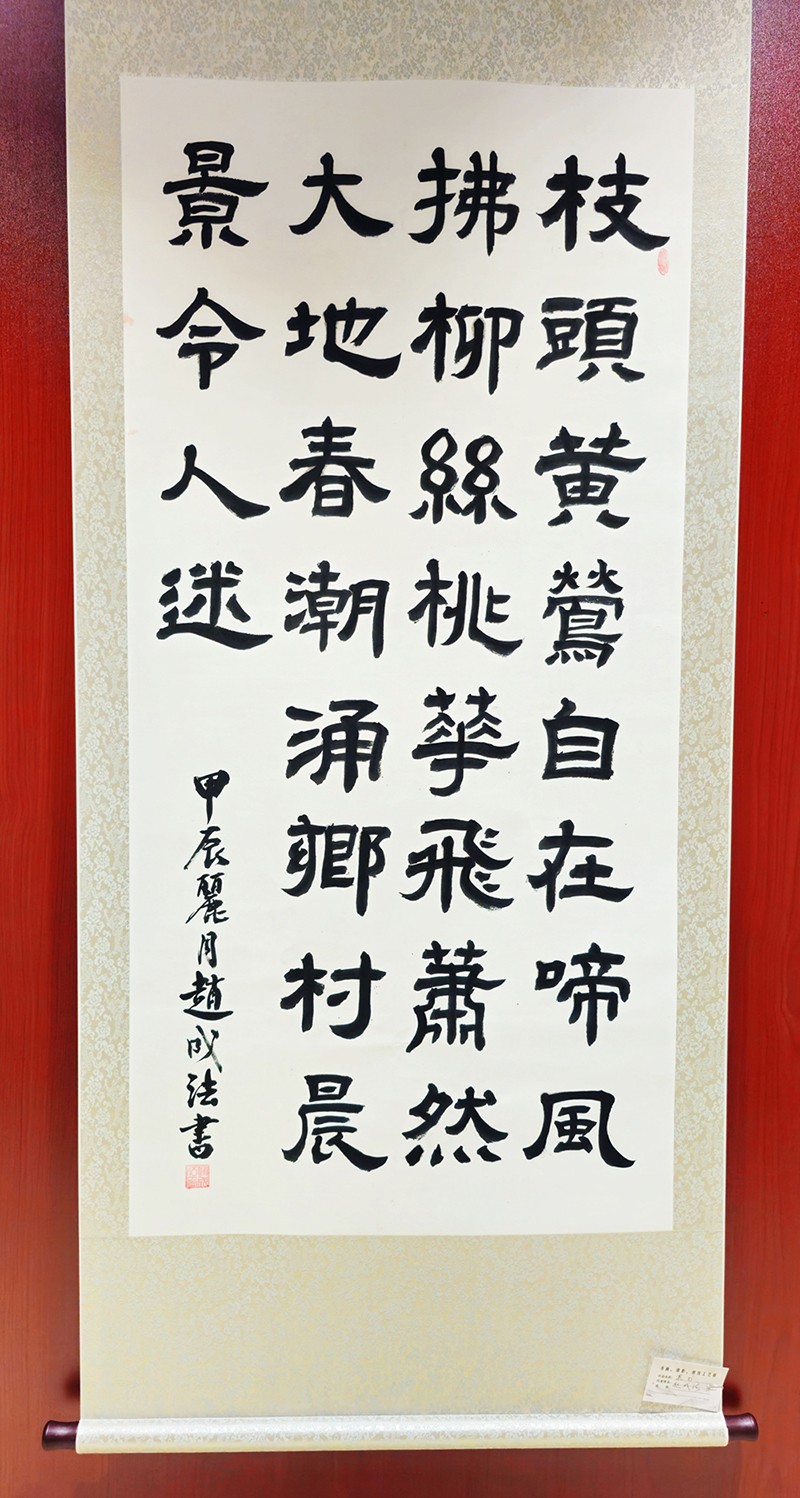 枝頭黄鶯自在啼風
拂柳絲桃華飛蕭然
大地春潮涌鄉村晨
景令人迷
甲辰麗月趙成法書